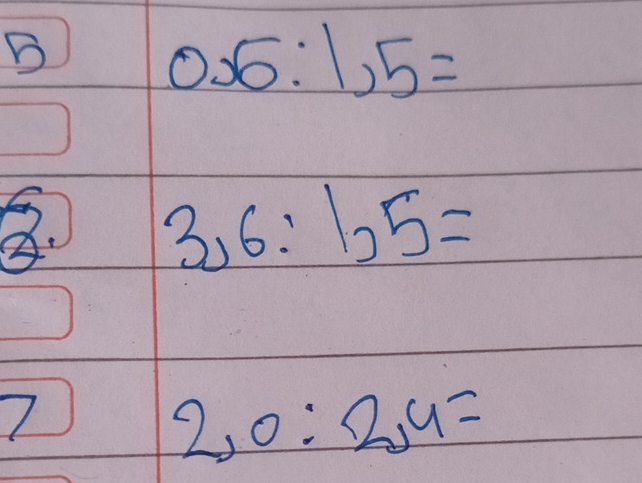 5 0,6 : 1,5 =
6. 3,6 : 1,5 =
7 2,0 : 2,4 =